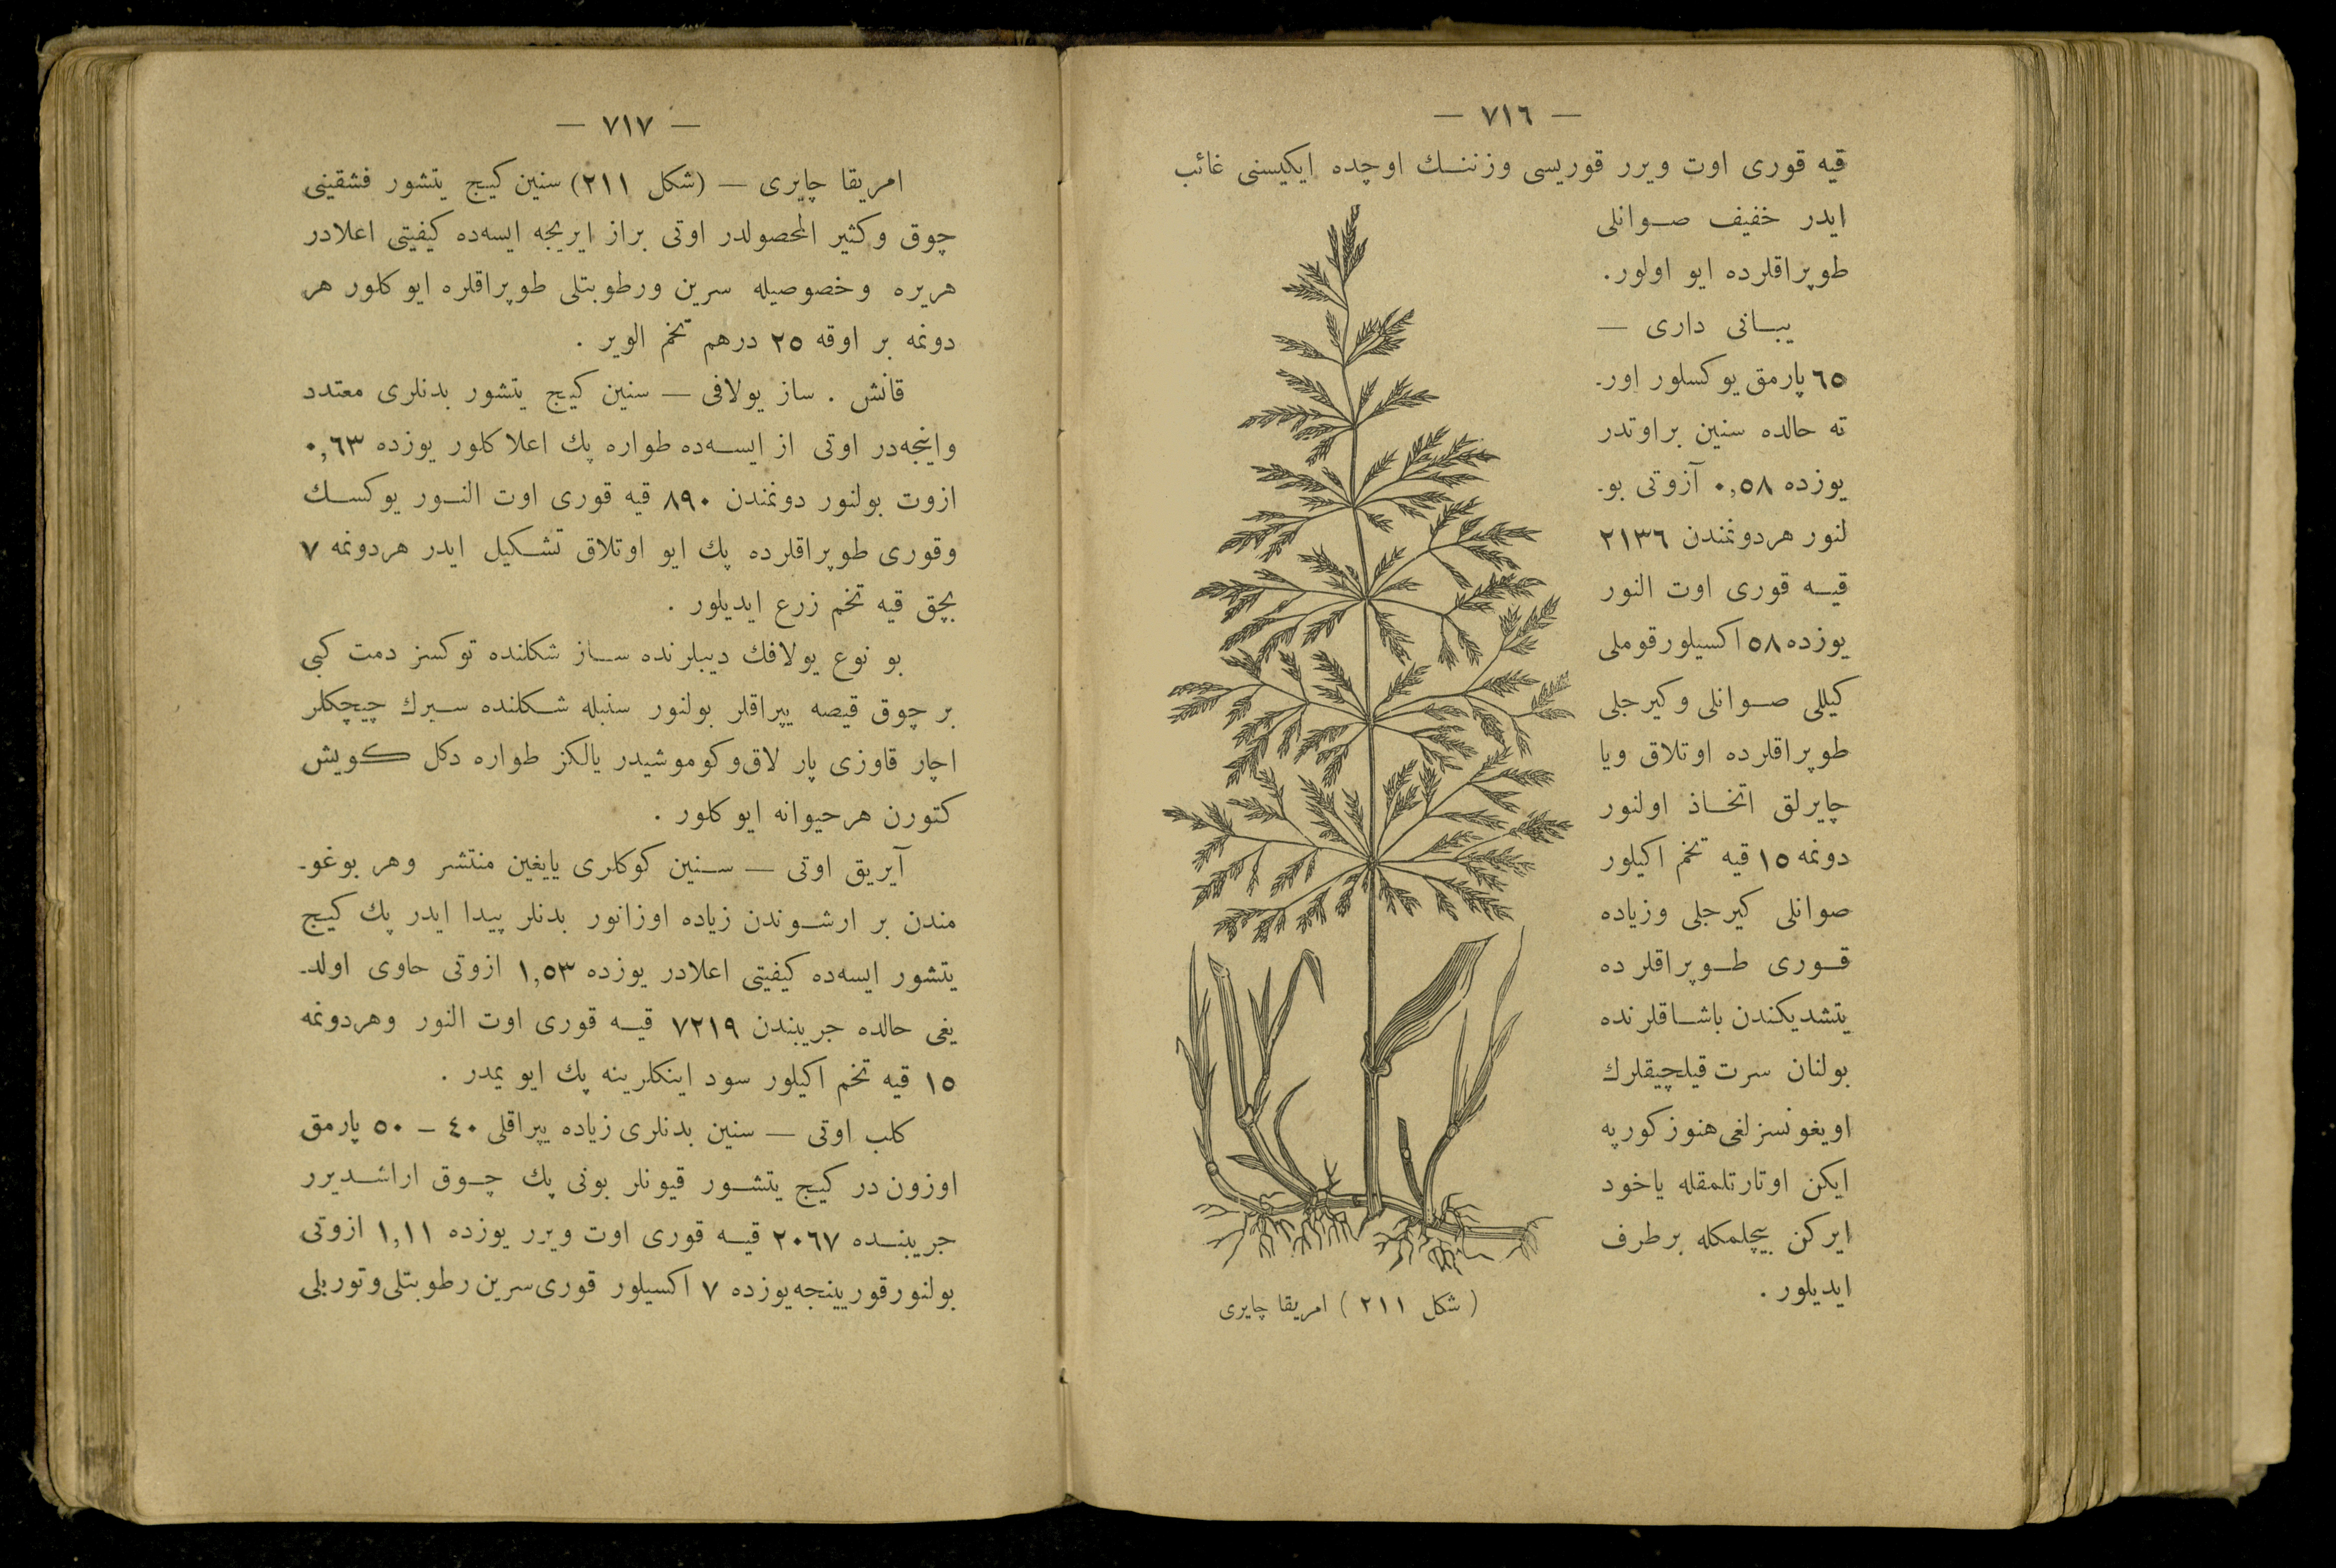 — ٧١٦ —
قیه قوری اوت ویرر قوریسی وزننـك اوچده ایکیسنی غائب
ایدر خفیف صـوانلی
طوپراقلرده ایو اولور.
یبـانی داری —
٦٥ پارمق یوکسلور اور-
ته حالده سنین براوتدر
یوزده ٠,٥٨ آزوتی بو-
لنور هردونمندن ٢١٣٦
قیـه قوری اوت النور
یوزده ٥٨ اکسیلور قوملی
کیللی صـوانلی وکیرجلی
طوپراقلرده اوتلاق ویا
چایرلق اتخـاذ اولنور
دونمه ١٥ قیه تخم اکیلور
صوانلی کیرجلی وزیاده
قـوری طـوپراقلرده
یتشدیکندن باشـاقلرنده
بولنان سرت قیلچیقلرك
اویغونسزلغی هنوز کورپه
ایکن اوتارتلمقله یاخود
ایرکن بیچلمکله برطرف
ایدیلور .
( شکل ٢١١ ) امریقا چایری
— ٧١٧ —
امریقا چایری — (شکل ٢١١) سنین کیج یتشور فشقینی
چوق وکثیر المحصولدر اوتی براز ایریجه ایسه‌ده کیفیتی اعلادر
هریره وخصوصیله سرین ورطوبتلی طوپراقلره ایو کلور هر
دونمه بر اوقه ٢٥ درهم تخم الویر .
قانش . ساز یولافی — سنین کیج یتشور بدنلری معتدد
واینجه‌در اوتی از ایسـه‌ده طواره پك اعلا کلور یوزده ٠,٦٣
ازوت بولنور دونمندن ٨٩٠ قیه قوری اوت النـور یوکسـك
وقوری طوپراقلرده پك ایو اوتلاق تشـکیل ایدر هردونمه ٧
بچق قیه تخم زرع ایدیلور .
بو نوع یولافك دیبلرنده سـاز شکلنده توکسز دمت کبی
بر چوق قیصه یپراقلر بولنور سنبله شـکلنده سـیرك چیچکلر
اچار قاوزی پار لاق‌وکوموشیدر یالکز طواره دکل کـویش
کتورن هرحیوانه ایو کلور .
آیریق اوتی — سـنین کوکلری یایغین منتشر وهر بوغو-
مندن بر ارشـوندن زیاده اوزانور بدنلر پیدا ایدر پك کیج
یتشور ایسه‌ده کیفیتی اعلادر یوزده ١,٥٣ ازوتی حاوی اولد-
یغی حالده جریبندن ٧٢١٩ قیـه قوری اوت النور وهردونمه
١٥ قیه تخم اکیلور سود اینکلرینه پك ایو یمدر .
کلب اوتی — سنین بدنلری زیاده یپراقلی ٤٠ – ٥٠ پارمق
اوزون در کیج یتشـور قیونلر بونی پك چـوق اراشـدیرر
جریبنـده ٢٠٦٧ قیـه قوری اوت ویرر یوزده ١,١١ ازوتی
بولنور قورینجه یوزده ٧ اکسیلور قوری سرین رطوبتلی وتوربلی